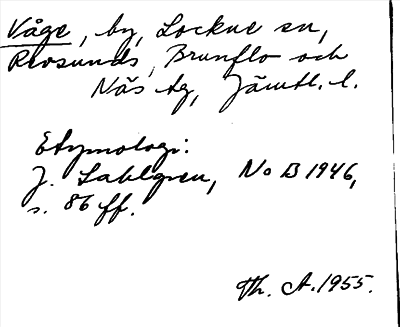 Våge, by, Lockne sn,
Revsunds, Brunflo och
Näs tg, Jämtl. l.
Etymologi:
J. Sahlgren, NoB 1946,
s. 86 ff.
Th. A. 1955.